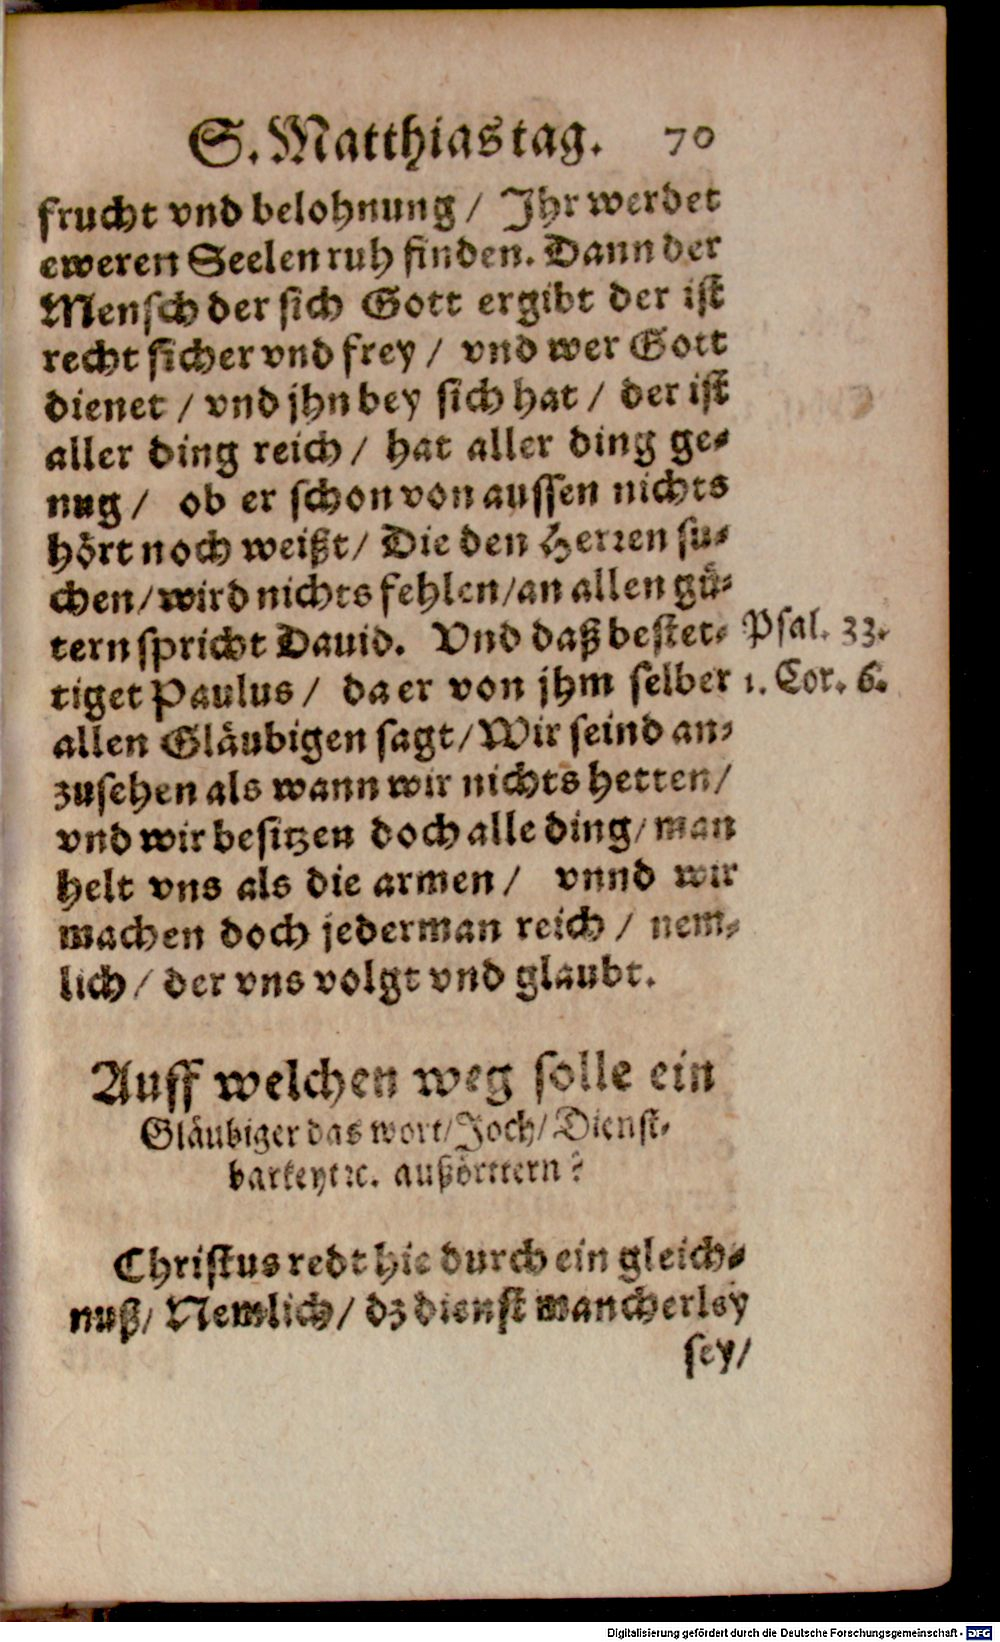 S. Matthiastag. 70
frucht vnd belohnung / Jhr werdet
eweren Seelen ruh finden. Dann der
Mensch der sich Gott ergibt der ist
recht sicher vnd frey / vnd wer Gott
dienet / vnd jhn bey sich hat / der ist
aller ding reich / hat aller ding ge-
nug / ob er schon von aussen nichts
hört noch weißt / Die den Herren su-
chen / wird nichts fehlen / an allen gü-
tern spricht Dauid. Vnd daß bestet- Psal. 33.
tiget Paulus / da er von jhm selber 1. Cor. 6.
allen Gläubigen sagt / Wir seind an-
zusehen als wann wir nichts hetten /
vnd wir besitzen doch alle ding / man
helt vns als die armen / vnnd wir
machen doch jederman reich / nem-
lich / der vns volgt vnd glaubt.
Auff welchen weg solle ein
Gläubiger das wort / Joch / Dienst-
barkeyt ꝛc. außörttern?
Christus redt hie durch ein gleich-
nuß / Nemlich / dz dienst mancherley
sey /
Digitalisierung gefördert durch die Deutsche Forschungsgemeinschaft - DFG